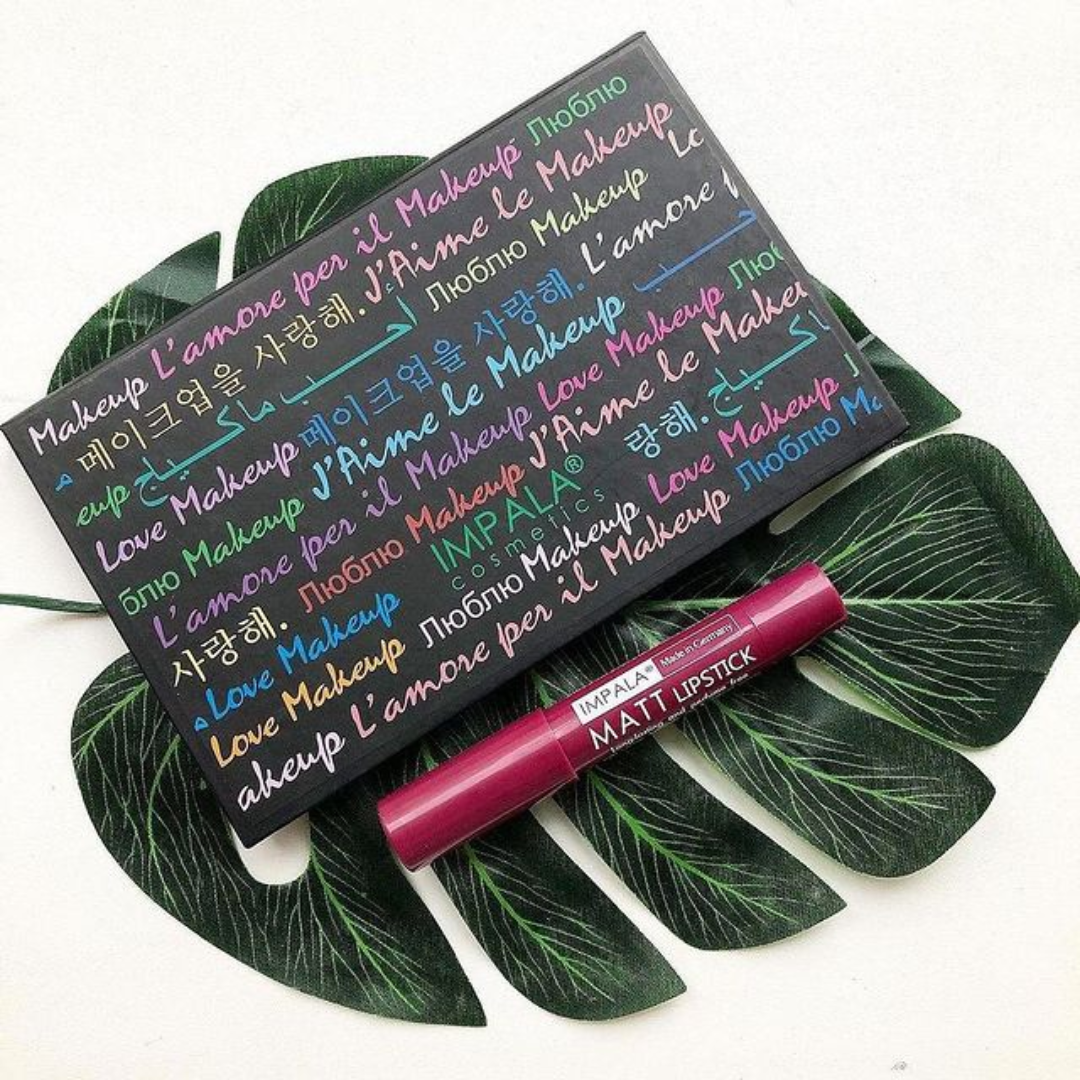 Makeup L'amore per il Makeup Люблю
메이크업을 사랑해. J'Aime le Makeup
eup أحب ماكياج Люблю Makeup
Love Makeup 메이크업을 사랑해. L'amore
блю Makeup J'Aime le Makeup
L'amore per il Makeup Love Makeup
사랑해. Люблю Makeup J'Aime le Makeu
Love Makeup IMPALA® 랑해.
cosmetics
Love Makeup Люблю Makeup Love Makeup
akeup L'amore per il Makeup Люблю
IMPALA® Made in Germany
MATT LIPSTICK